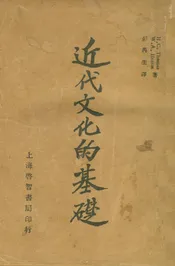 H. C. Thomas
W. A. Hamm
著
譯
近代文化的基礎
上海啓智書局印行